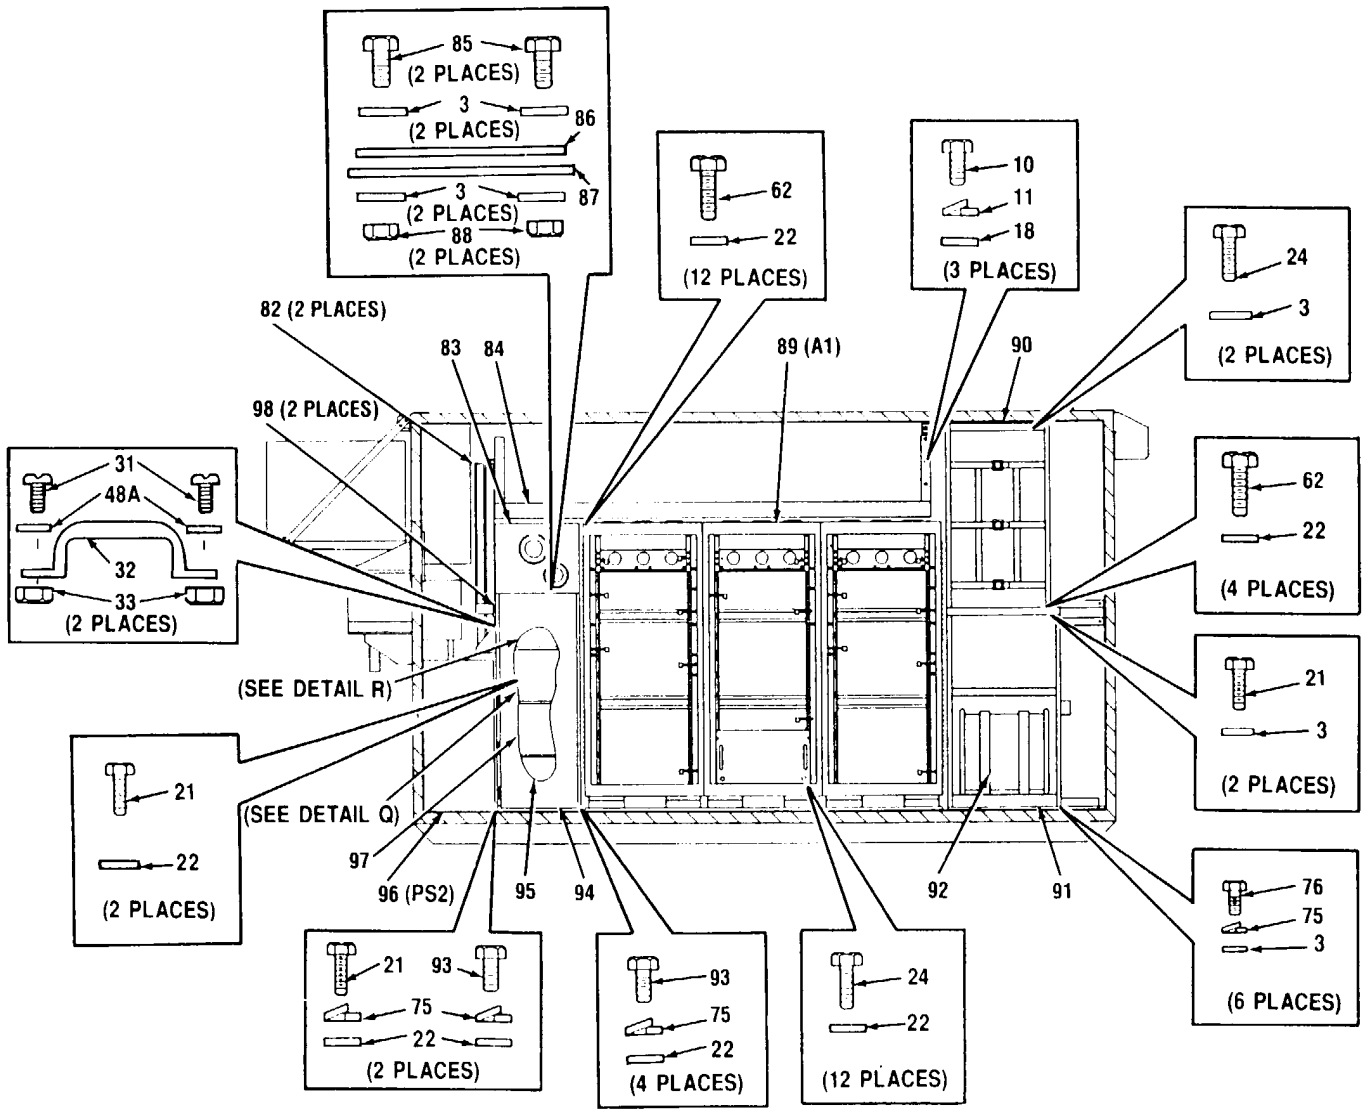 85
(2 PLACES)
3
(2 PLACES)
86
87
3
(2 PLACES)
88
(2 PLACES)
62
22
(12 PLACES)
10
11
18
(3 PLACES)
24
3
(2 PLACES)
82 (2 PLACES)
83
84
89 (A1)
90
98 (2 PLACES)
31
48A
32
33
(2 PLACES)
62
22
(4 PLACES)
21
3
(2 PLACES)
(SEE DETAIL R)
21
22
(2 PLACES)
(SEE DETAIL Q)
97
96 (PS2)
95
94
92
91
76
75
3
(6 PLACES)
21
93
75
22
(2 PLACES)
93
75
22
(4 PLACES)
24
22
(12 PLACES)